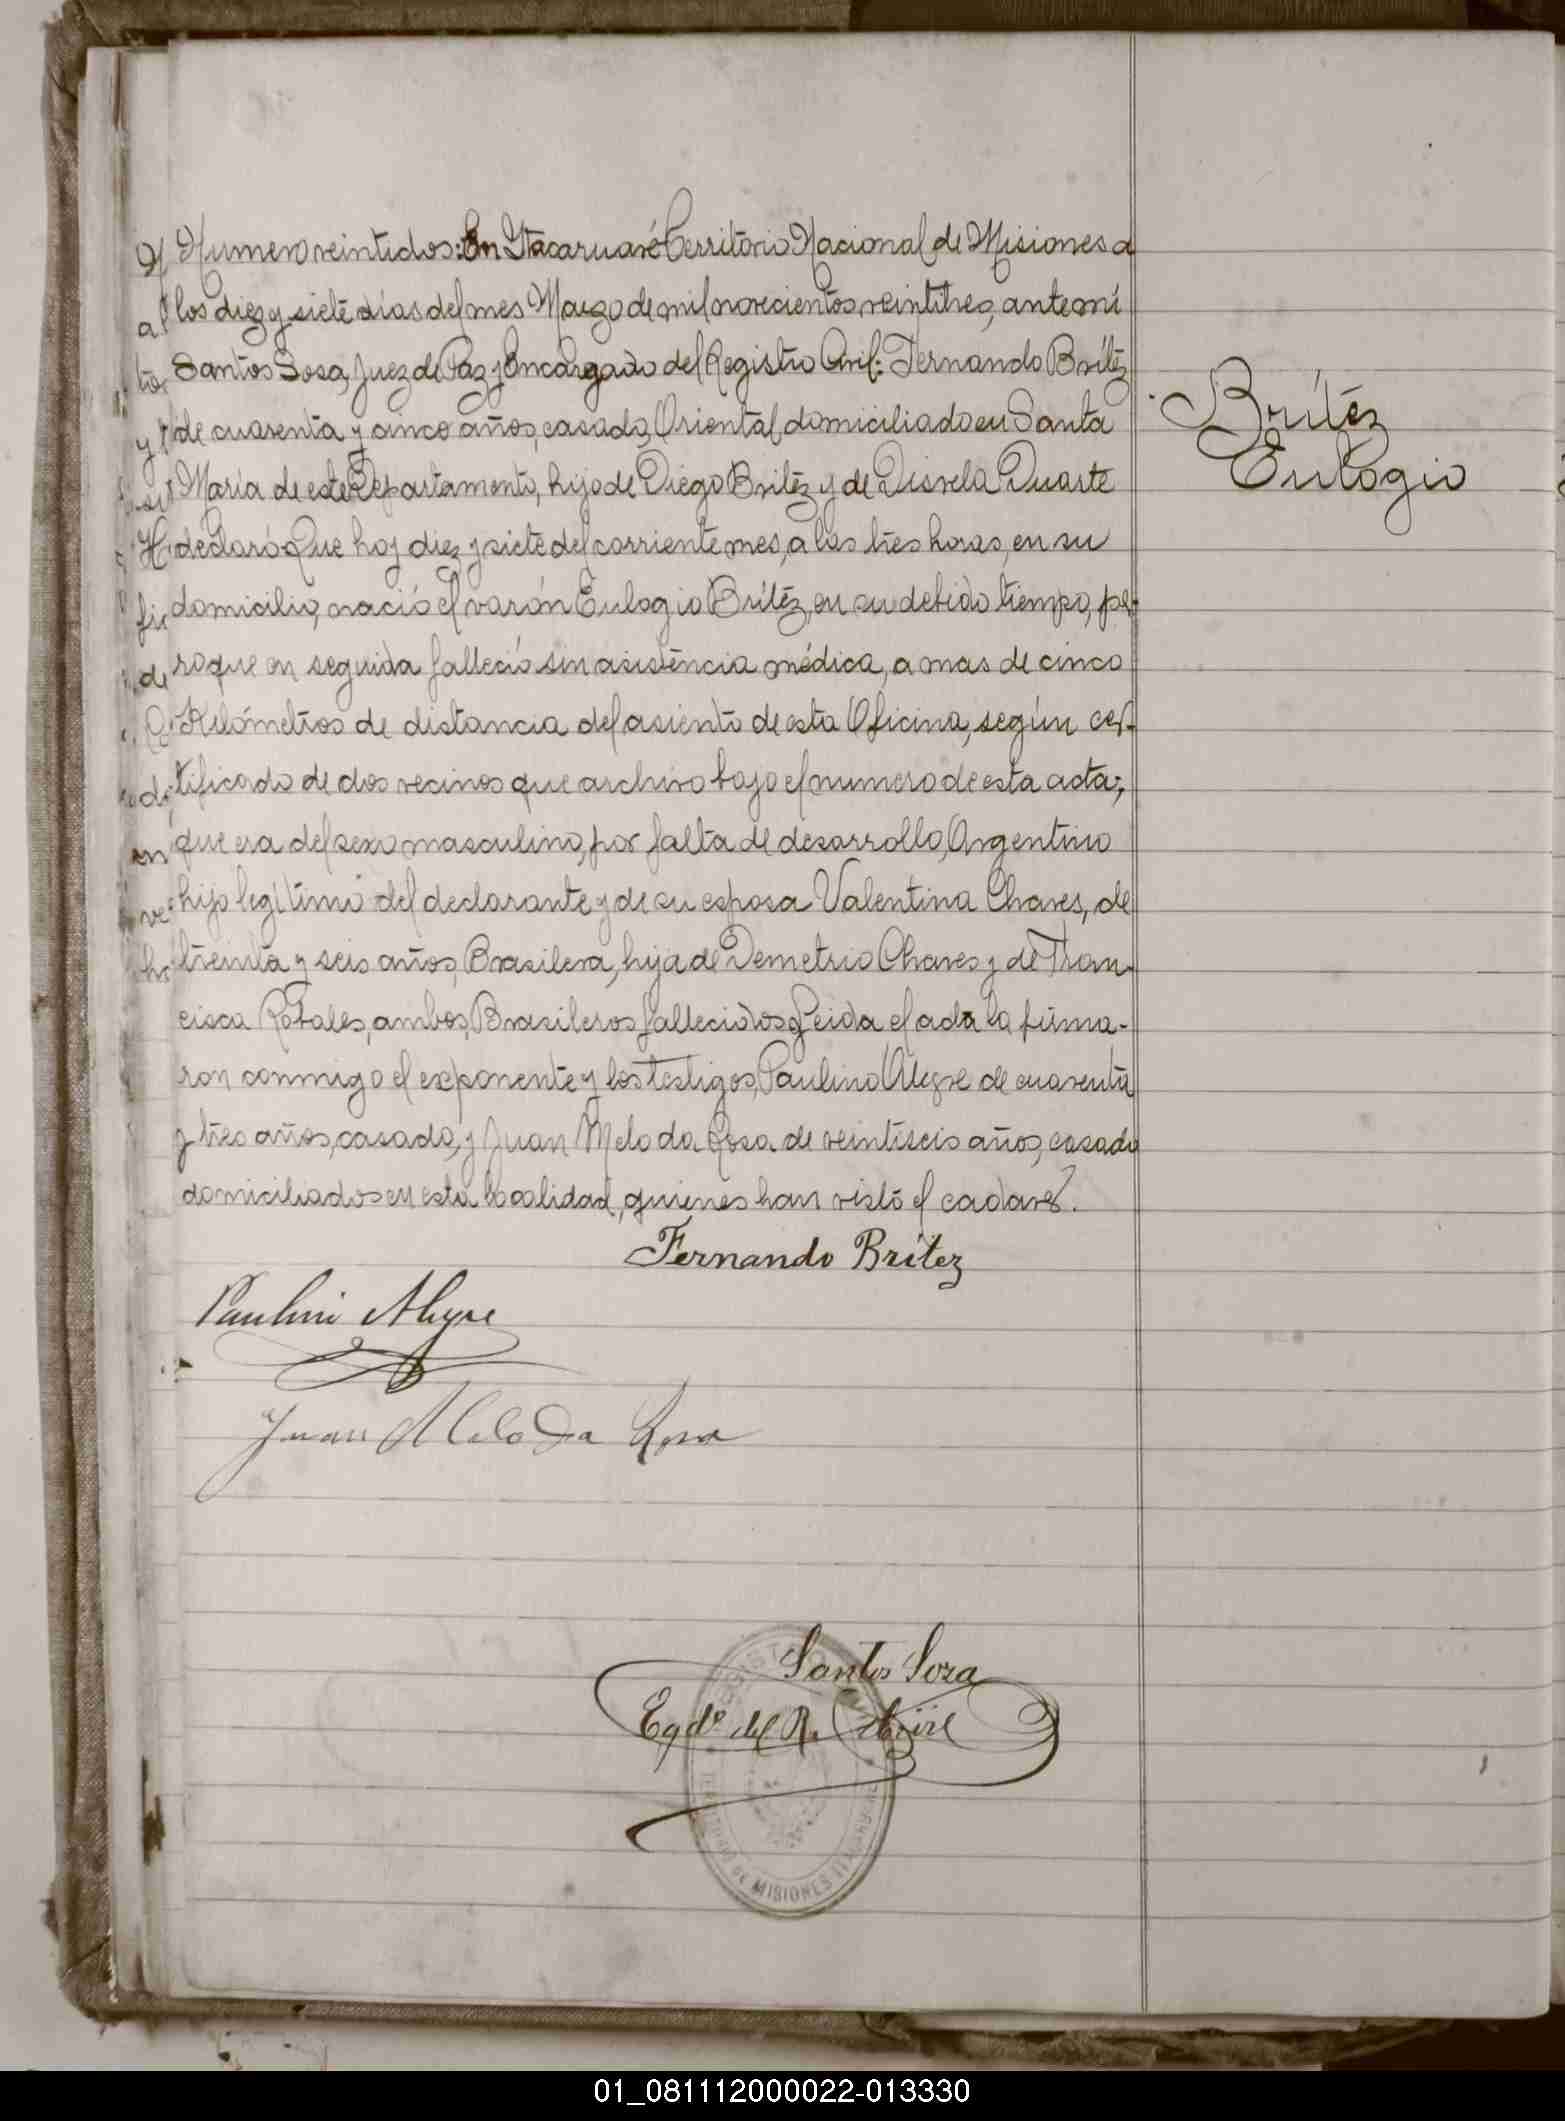 Numero veintidos: En Itacaruaré Territorio Nacional de Misiones a
los diez y siete días del mes Marzo de mil novecientos veintitres, ante mí
Santos Sosa, Juez de Paz y Encargado del Registro Civil: Fernando Brítez
de cuarenta y cinco años, casado, Oriental domiciliado en Santa
María de este Departamento, hijo de Diego Brítez y de Duarte
declaró: Que hoy diez y siete del corriente mes, a las tres horas, en su
domicilio, nació el varón Eulogio Brítez, en su debido tiempo, pe-
ro que en seguida falleció sin asistencia médica, a mas de cinco
Kilómetros de distancia del asiento de esta Oficina, según cer-
tificado de dos vecinos que archivo bajo el numero de esta acta;
que era del sexo masculino, por falta de desarrollo, Argentino
hijo legítimo del declarante y de su esposa Valentina Chaves, de
treinta y seis años, Brasilera, hija de Demetrio Chaves y de Fran-
cisca ambos, Brasileros fallecidos. Leida el acta la firma-
ron conmigo el exponente y los testigos, Paulino Alegre de cuarenta
y tres años, casado, y Juan Melo da Rosa de veintiseis años, casado
domiciliados en esta localidad, quienes han visto el cadaver.
Brítez
Eulogio
Fernando Brítez
Paulino Alegre
Juan Melo Da Rosa
Santos Sosa
Egdo. del R. Civil
REGISTRO CIVIL
TERRITORIO DE MISIONES
01_081112000022-013330